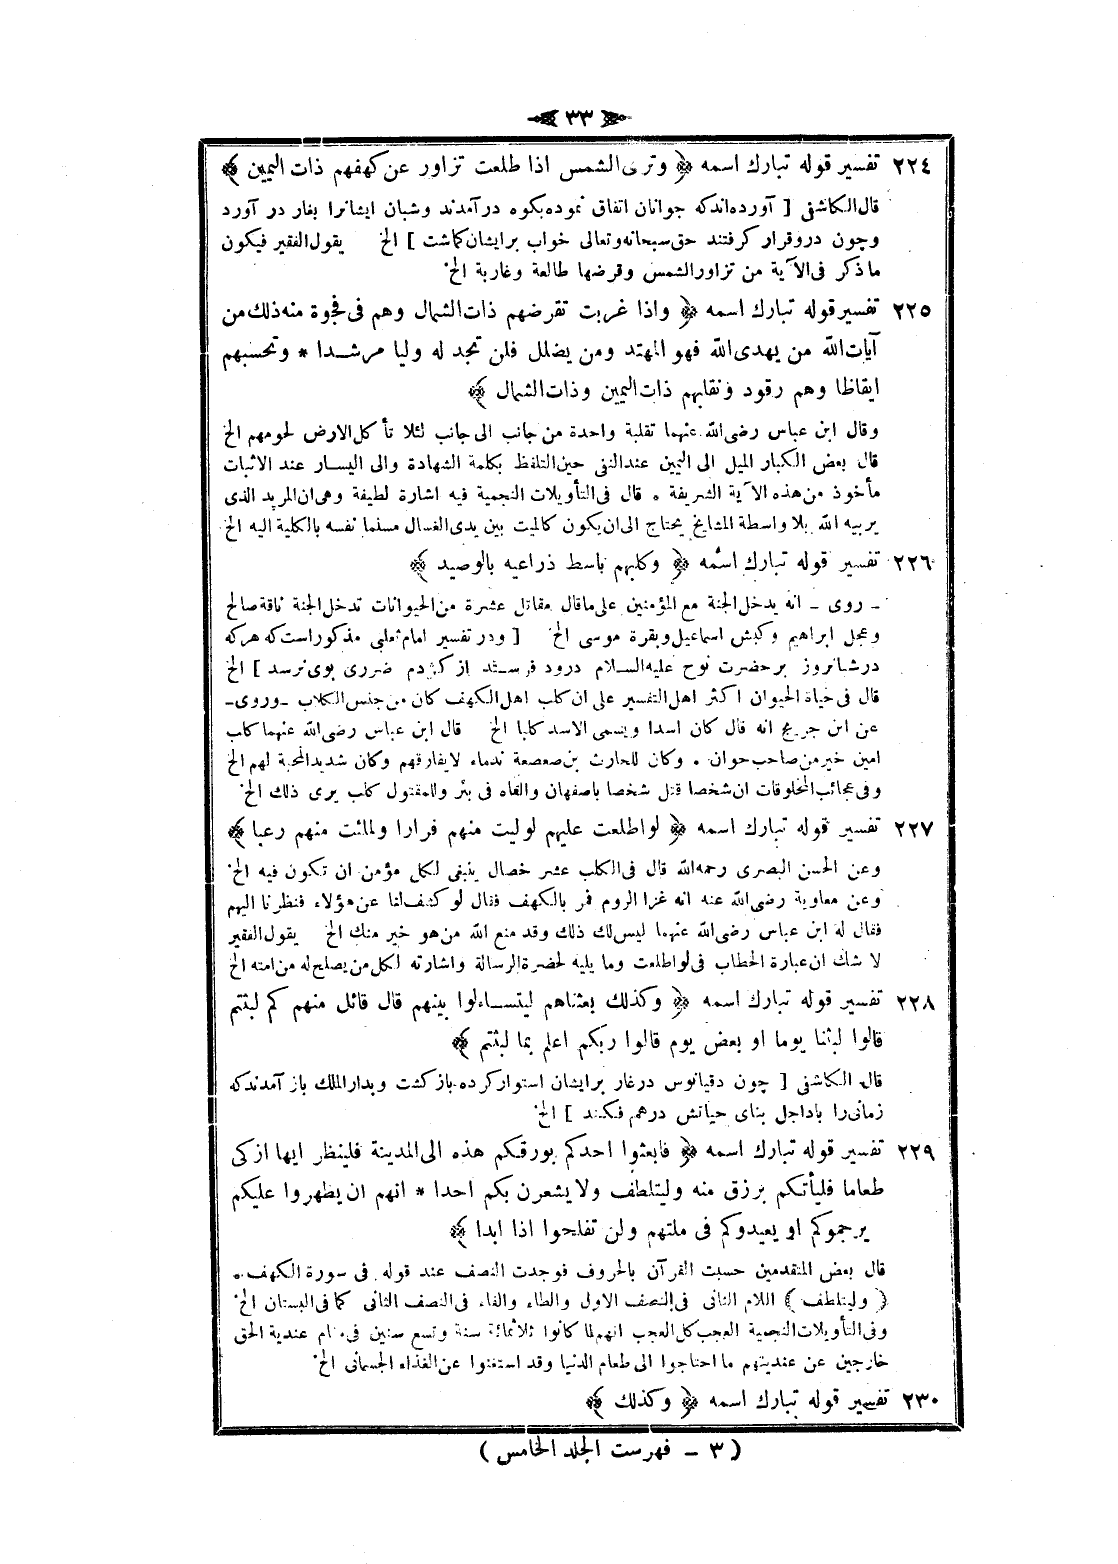 ٣٣
٢٢٤ تفسير قوله تبارك اسمه ﴿ وترى الشمس اذا طلعت تزاور عن كهفهم ذات اليمين ﴾
قال الكاشفى [ آورده اندكه جوانان اتفاق نموده بكوه در آمدند وشبان ايشانرا بغار در آورد
وچون درو قرار كرفتند حق سبحانه وتعالى خواب بر ايشان كماشت ] الخ يقول الفقير فيكون
ما ذكر فى الآية من تزاور الشمس وقرضها طالعة وغاربة الخ
٢٢٥ تفسير قوله تبارك اسمه ﴿ واذا غربت تقرضهم ذات الشمال وهم فى فجوة منه ذلك من
آيات الله من يهدى الله فهو المهتد ومن يضلل فلن تجد له وليا مرشدا * وتحسبهم
ايقاظا وهم رقود ونقلبهم ذات اليمين وذات الشمال ﴾
وقال ابن عباس رضى الله عنهما تقلبة واحدة من جانب الى جانب لئلا تأكل الارض لحومهم الخ
قال بعض الكبار الميل الى اليمين عند النفى حين التلفظ بكلمة الشهادة والى اليسار عند الاثبات
مأخوذ من هذه الآية الشريفة . قال فى التأويلات النجمية فيه اشارة لطيفة وهى ان المريد الذى
يربيه الله بلا واسطة المشايخ يحتاج الى ان يكون كالميت بين يدى الغسال مسلما نفسه بالكلية اليه الخ
٢٢٦ تفسير قوله تبارك اسمه ﴿ وكلبهم باسط ذراعيه بالوصيد ﴾
ـ روى ـ انه يدخل الجنة مع المؤمنين على ماقال مقاتل عشرة من الحيوانات تدخل الجنة ناقة صالح
وعجل ابراهيم وكبش اسماعيل وبقرة موسى الخ [ ودر تفسير امام ثعلبى مذكور است كه هركه
در شبانروز بر حضرت نوح عليه السلام درود فرستد از كژدم ضررى بوى نرسد ] الخ
قال فى حياة الحيوان اكثر اهل التفسير على ان كلب اهل الكهف كان من جنس الكلاب ـ وروى ـ
عن ابن جريج انه قال كان اسدا ويسمى الاسد كلبا الخ قال ابن عباس رضى الله عنهما كلب
امين خير من صاحب خوان . وكان للحارث بن صعصعة ندماء لا يفارقهم وكان شديد المحبة لهم الخ
وفى عجائب المخلوقات ان شخصا قتل شخصا باصفهان والقاه فى بئر وللمقتول كلب يرى ذلك الخ
٢٢٧ تفسير قوله تبارك اسمه ﴿ لو اطلعت عليهم لوليت منهم فرارا ولملئت منهم رعبا ﴾
وعن الحسن البصرى رحمه الله قال فى الكلب عشر خصال ينبغى لكل مؤمن ان تكون فيه الخ
وعن معاوية رضى الله عنه انه غزا الروم فمر بالكهف فقال لو كشف لنا عن هؤلاء فنظرنا اليهم
فقال له ابن عباس رضى الله عنهما ليس لك ذلك وقد منع الله من هو خير منك الخ يقول الفقير
لا شك ان عبارة الخطاب فى لو اطلعت وما يليه لحضرة الرسالة واشارته لكل من يصلح له من امته الخ
٢٢٨ تفسير قوله تبارك اسمه ﴿ وكذلك بعثناهم ليتساءلوا بينهم قال قائل منهم كم لبثتم
قالوا لبثنا يوما او بعض يوم قالوا ربكم اعلم بما لبثتم ﴾
قال الكاشفى [ چون دقيانوس در غار بر ايشان استوار كرده بازكشت وبدار الملك باز آمدندكه
زمانى را با داجل بناى حياتش درهم فكند ] الخ
٢٢٩ تفسير قوله تبارك اسمه ﴿ فابعثوا احدكم بورقكم هذه الى المدينة فلينظر ايها ازكى
طعاما فليأتكم برزق منه وليتلطف ولا يشعرن بكم احدا * انهم ان يظهروا عليكم
يرجموكم او يعيدوكم فى ملتهم ولن تفلحوا اذا ابدا ﴾
قال بعض المتقدمين حسبت القرآن بالحروف فوجدت النصف عند قوله فى سورة الكهف .
﴿ وليتلطف ﴾ اللام الثانى فى النصف الاول والطاء والفاء فى النصف الثانى كما فى البستان الخ
وفى التأويلات النجمية العجب كل العجب انهم لما كانوا ثلاثمائة سنة وتسع سنين فى مقام عندية الحق
خارجين عن عنديتهم ما احتاجوا الى طعام الدنيا وقد استغنوا عن الغذاء الجسمانى الخ
٢٣٠ تفسير قوله تبارك اسمه ﴿ وكذلك ﴾
( ٣ ـ فهرست الجلد الخامس )